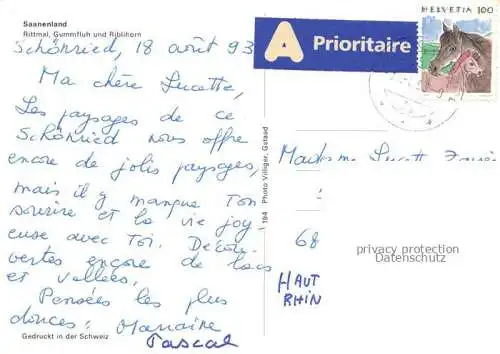 Saanenland
Rittmal, Gummfluh und Rüblihorn
Schönried, 18 août 93
Ma chère Lucette,
Les paysages de ce
Schönried nous offre
encore de jolis paysages,
mais il y manque Ton
sourire et la vie joy-
euse avec Toi. Décou-
vertes encore de lacs
et vallées,
Pensées les plus
douces:
Pascal
Gedruckt in der Schweiz
194 Photo Villiger, Gstaad
A Prioritaire
HELVETIA 100
Madame
68
HAUT
RHIN
privacy protection
Datenschutz